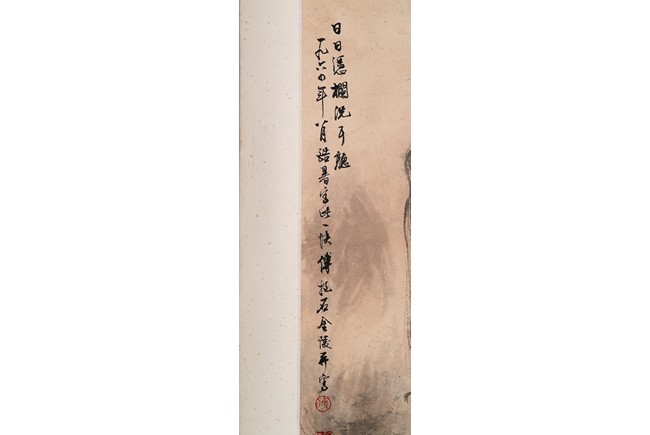 日日憑欄洗耳聽
一九六四年八月酷暑寫此一快傅抱石金陵並寫